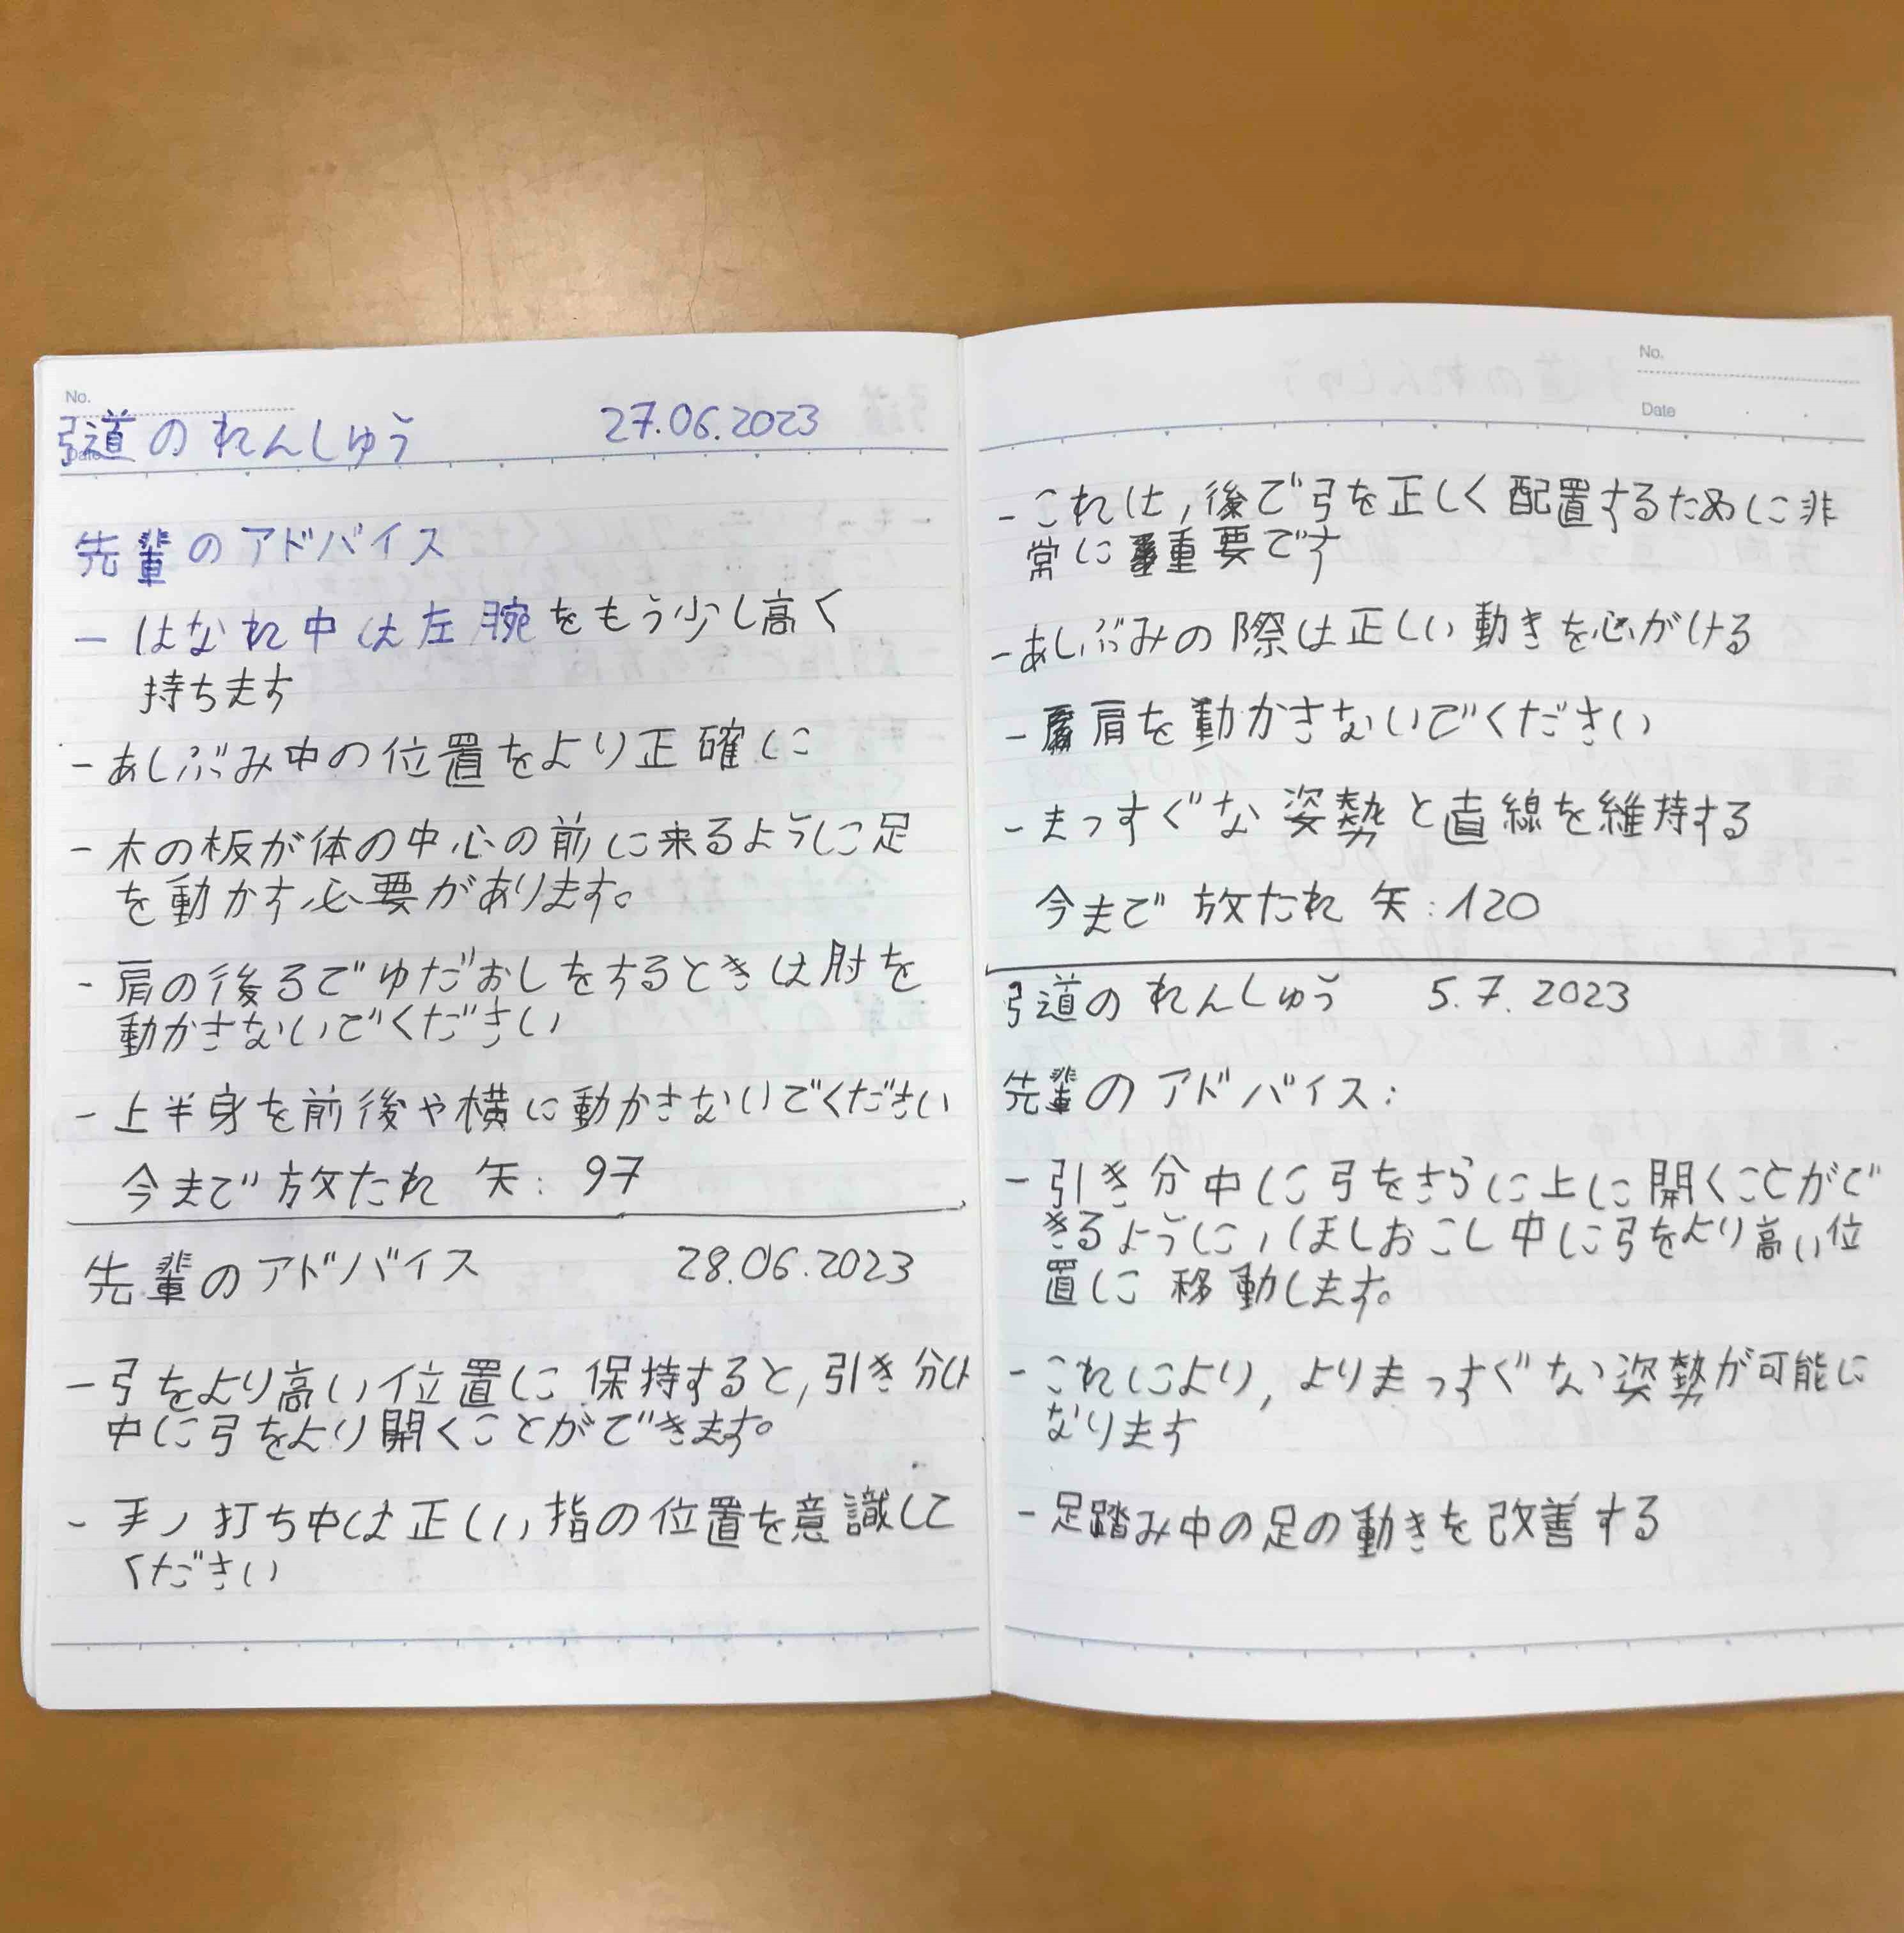 No.
Date
弓道のれんしゅう 27.06.2023
先輩のアドバイス
- はなれ中は左腕をもう少し高く
持ちます
- あしぶみ中の位置をより正確に
- 木の板が体の中心の前に来るように足
を動かす必要があります。
- 肩の後ろでゆだおしをするときは肘を
動かさないでください
- 上半身を前後や横に動かさないでください
今まで放たれ 矢: 97
先輩のアドバイス 28.06.2023
- 弓をより高い位置に保持すると, 引き分け
中に弓をより開くことができます。
- 手ノ打ち中は正しい指の位置を意識して
ください
No.
Date
- これは, 後で弓を正しく配置するために非
常に重要です
- あしぶみの際は正しい動きを心がける
- 肩を動かさないでください
- まっすぐな姿勢と直線を維持する
今まで放たれ 矢: 120
弓道のれんしゅう 5.7.2023
先輩のアドバイス:
- 引き分中に弓をさらに上に開くことがで
きるように, ほしおこし中に弓をより高い位
置に移動します。
- これにより, よりまっすぐな姿勢が可能に
なります
- 足踏み中の足の動きを改善する